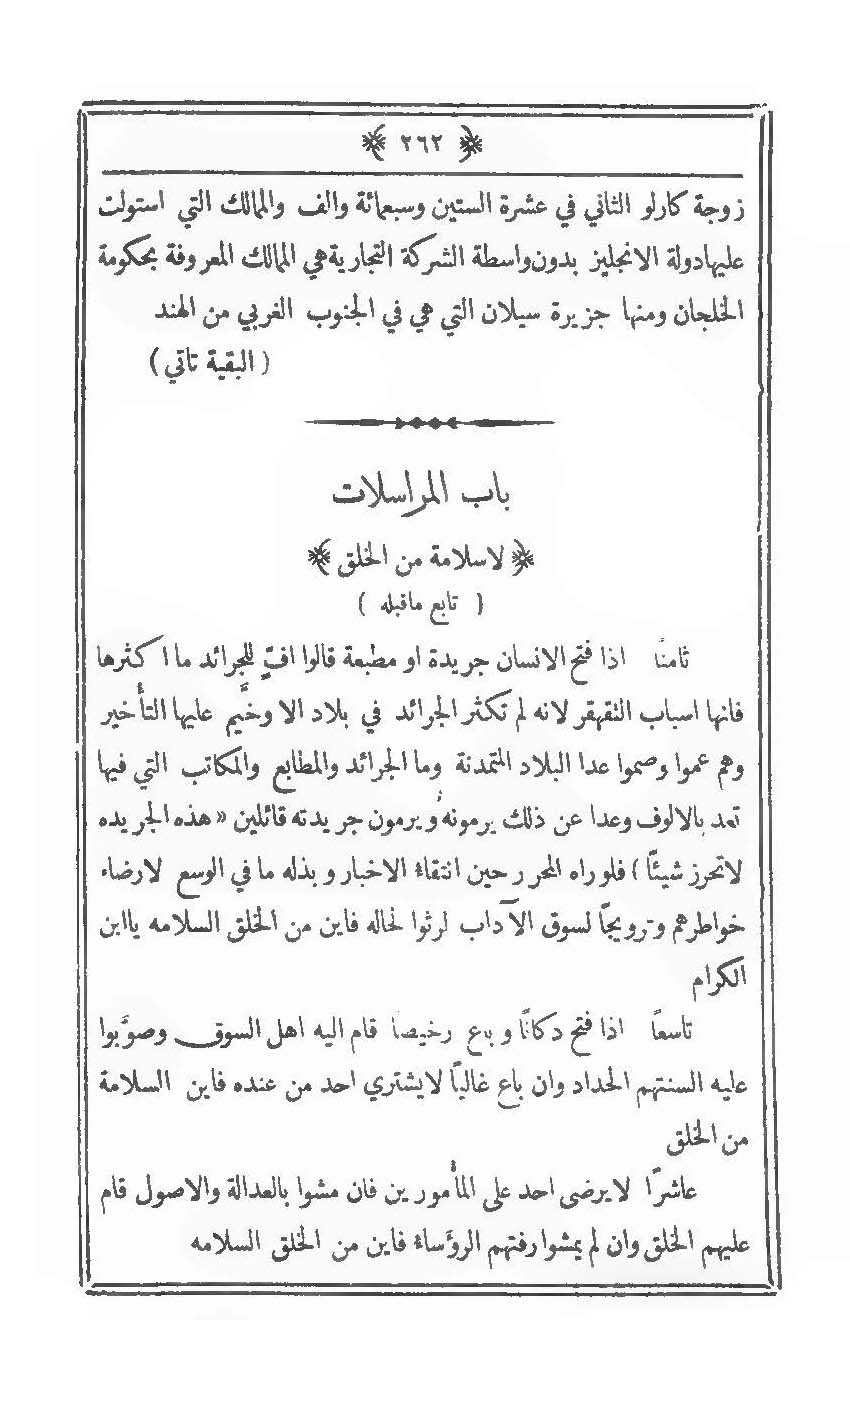 ﴿ ٢٦٢ ﴾
زوجة كارلو الثاني في عشرة الستين وسبعمائة والف والممالك التي استولت
عليها دولة الانجليز بدون واسطة الشركة التجارية هي الممالك المعروفة بحكومة
الخلجان ومنها جزيرة سيلان التي هي في الجنوب الغربي من الهند
( البقية تاتي )
باب المراسلات
﴿ لا سلامة من الخلق ﴾
( تابع ماقبله )
ثامنًا اذا فتح الانسان جريدة او مطبعة قالوا افٍّ للجرائد ما اكثرها
فانها اسباب التقهقر لانه لم تكثر الجرائد في بلاد الا وخيَّم عليها التأخير
وهم عموا وصموا عدا البلاد المتمدنة وما الجرائد والمطابع والمكاتب التي فيها
تعد بالالوف وعدا عن ذلك يرمونه ويرمون جريدته قائلين « هذه الجريده
لاتحرز شيئًا ) فلو راه المحرر حين انتقاء الاخبار و بذله ما في الوسع لارضاء
خواطرهم وترويجًا لسوق الآداب لرثوا لحاله فاين من الخلق السلامه ياابن
الكرام
تاسعًا اذا فتح دكانًا و باع رخيصًا قام اليه اهل السوق وصوَّبوا
عليه السنتهم الحداد وان باع غالبًا لايشتري احد من عنده فاين السلامة
من الخلق
عاشرًا لا يرضى احد على المأمورين فان مشوا بالعدالة والاصول قام
عليهم الخلق وان لم يمشوا رفتهم الرؤساء فاين من الخلق السلامه